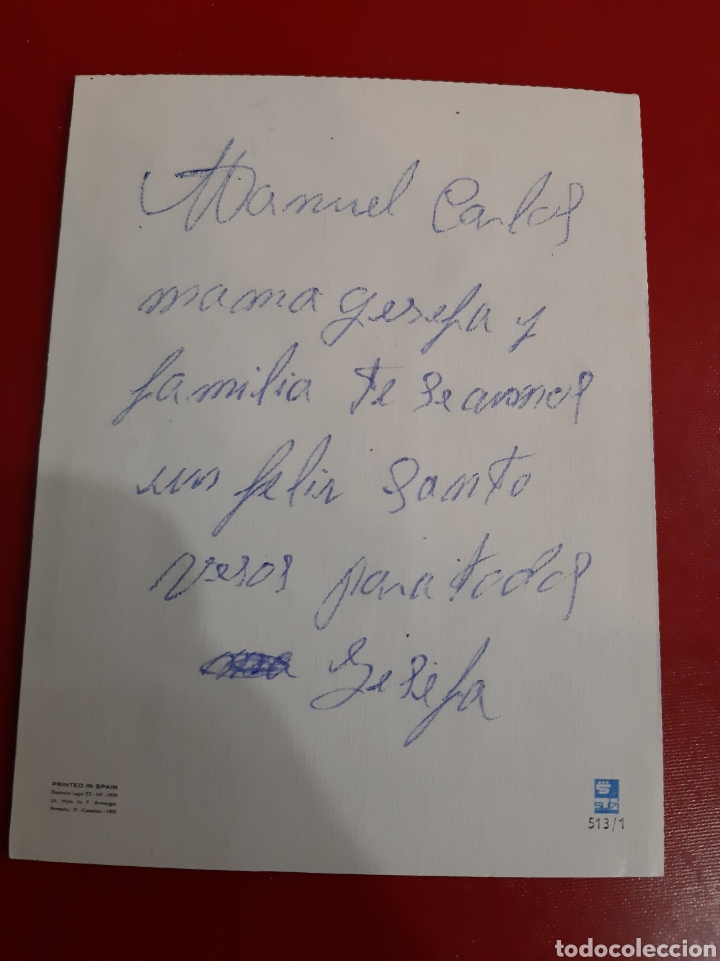 Manuel Carlos
mama gesefa y
familia te seamos
un feliz santo
vesos para todos
Gesefa
PRINTED IN SPAIN
513/1
todocoleccion